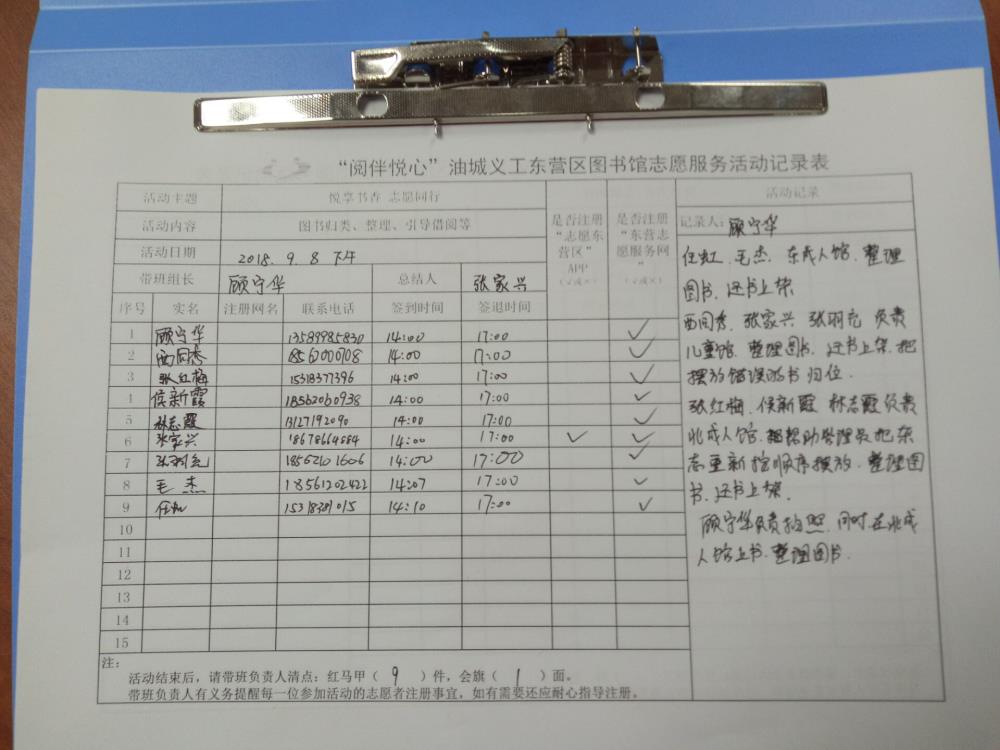 “阅伴悦心”油城义工东营区图书馆志愿服务活动记录表
活动主题 悦享书香 志愿同行
活动内容 图书归类、整理、引导借阅等
活动日期 2018.9.8 下午
带班组长 顾守华 总结人 张家兴
是否注册“志愿东营区”APP（√或×）
是否注册“东营志愿服务网”（√或×）
序号 实名 注册网名 联系电话 签到时间 签退时间
1 顾守华 13589985830 14:00 17:00 √
2 西同秀 18561000708 14:00 17:00 √
3 张红梅 15318377396 14:00 17:00 √
4 侯新霞 18562060938 14:00 17:00 √
5 林志霞 13127192090 14:00 17:00 √
6 张家兴 18678664884 14:00 17:00 √ √
7 张羽充 18562101606 14:00 17:00 √
8 毛杰 18561202422 14:07 17:00 √
9 任虹 15318381015 14:10 17:00 √
10
11
12
13
14
15
活动记录
记录人：顾守华
任虹、毛杰、东成人馆、整理
图书、还书上架
西同秀、张家兴 张羽充 负责
儿童馆、整理图书、还书上架、把
摆放错误的书归位.
张红梅、侯新霞 林志霞负责
北成人馆、帮助管理员把杂
志重新按顺序摆放、整理图
书、还书上架.
顾守华负责拍照、同时在北成
人馆上书、整理图书.
注：
活动结束后，请带班负责人清点：红马甲（ 9 ）件，会旗（ 1 ）面。
带班负责人有义务提醒每一位参加活动的志愿者注册事宜，如有需要还应耐心指导注册。